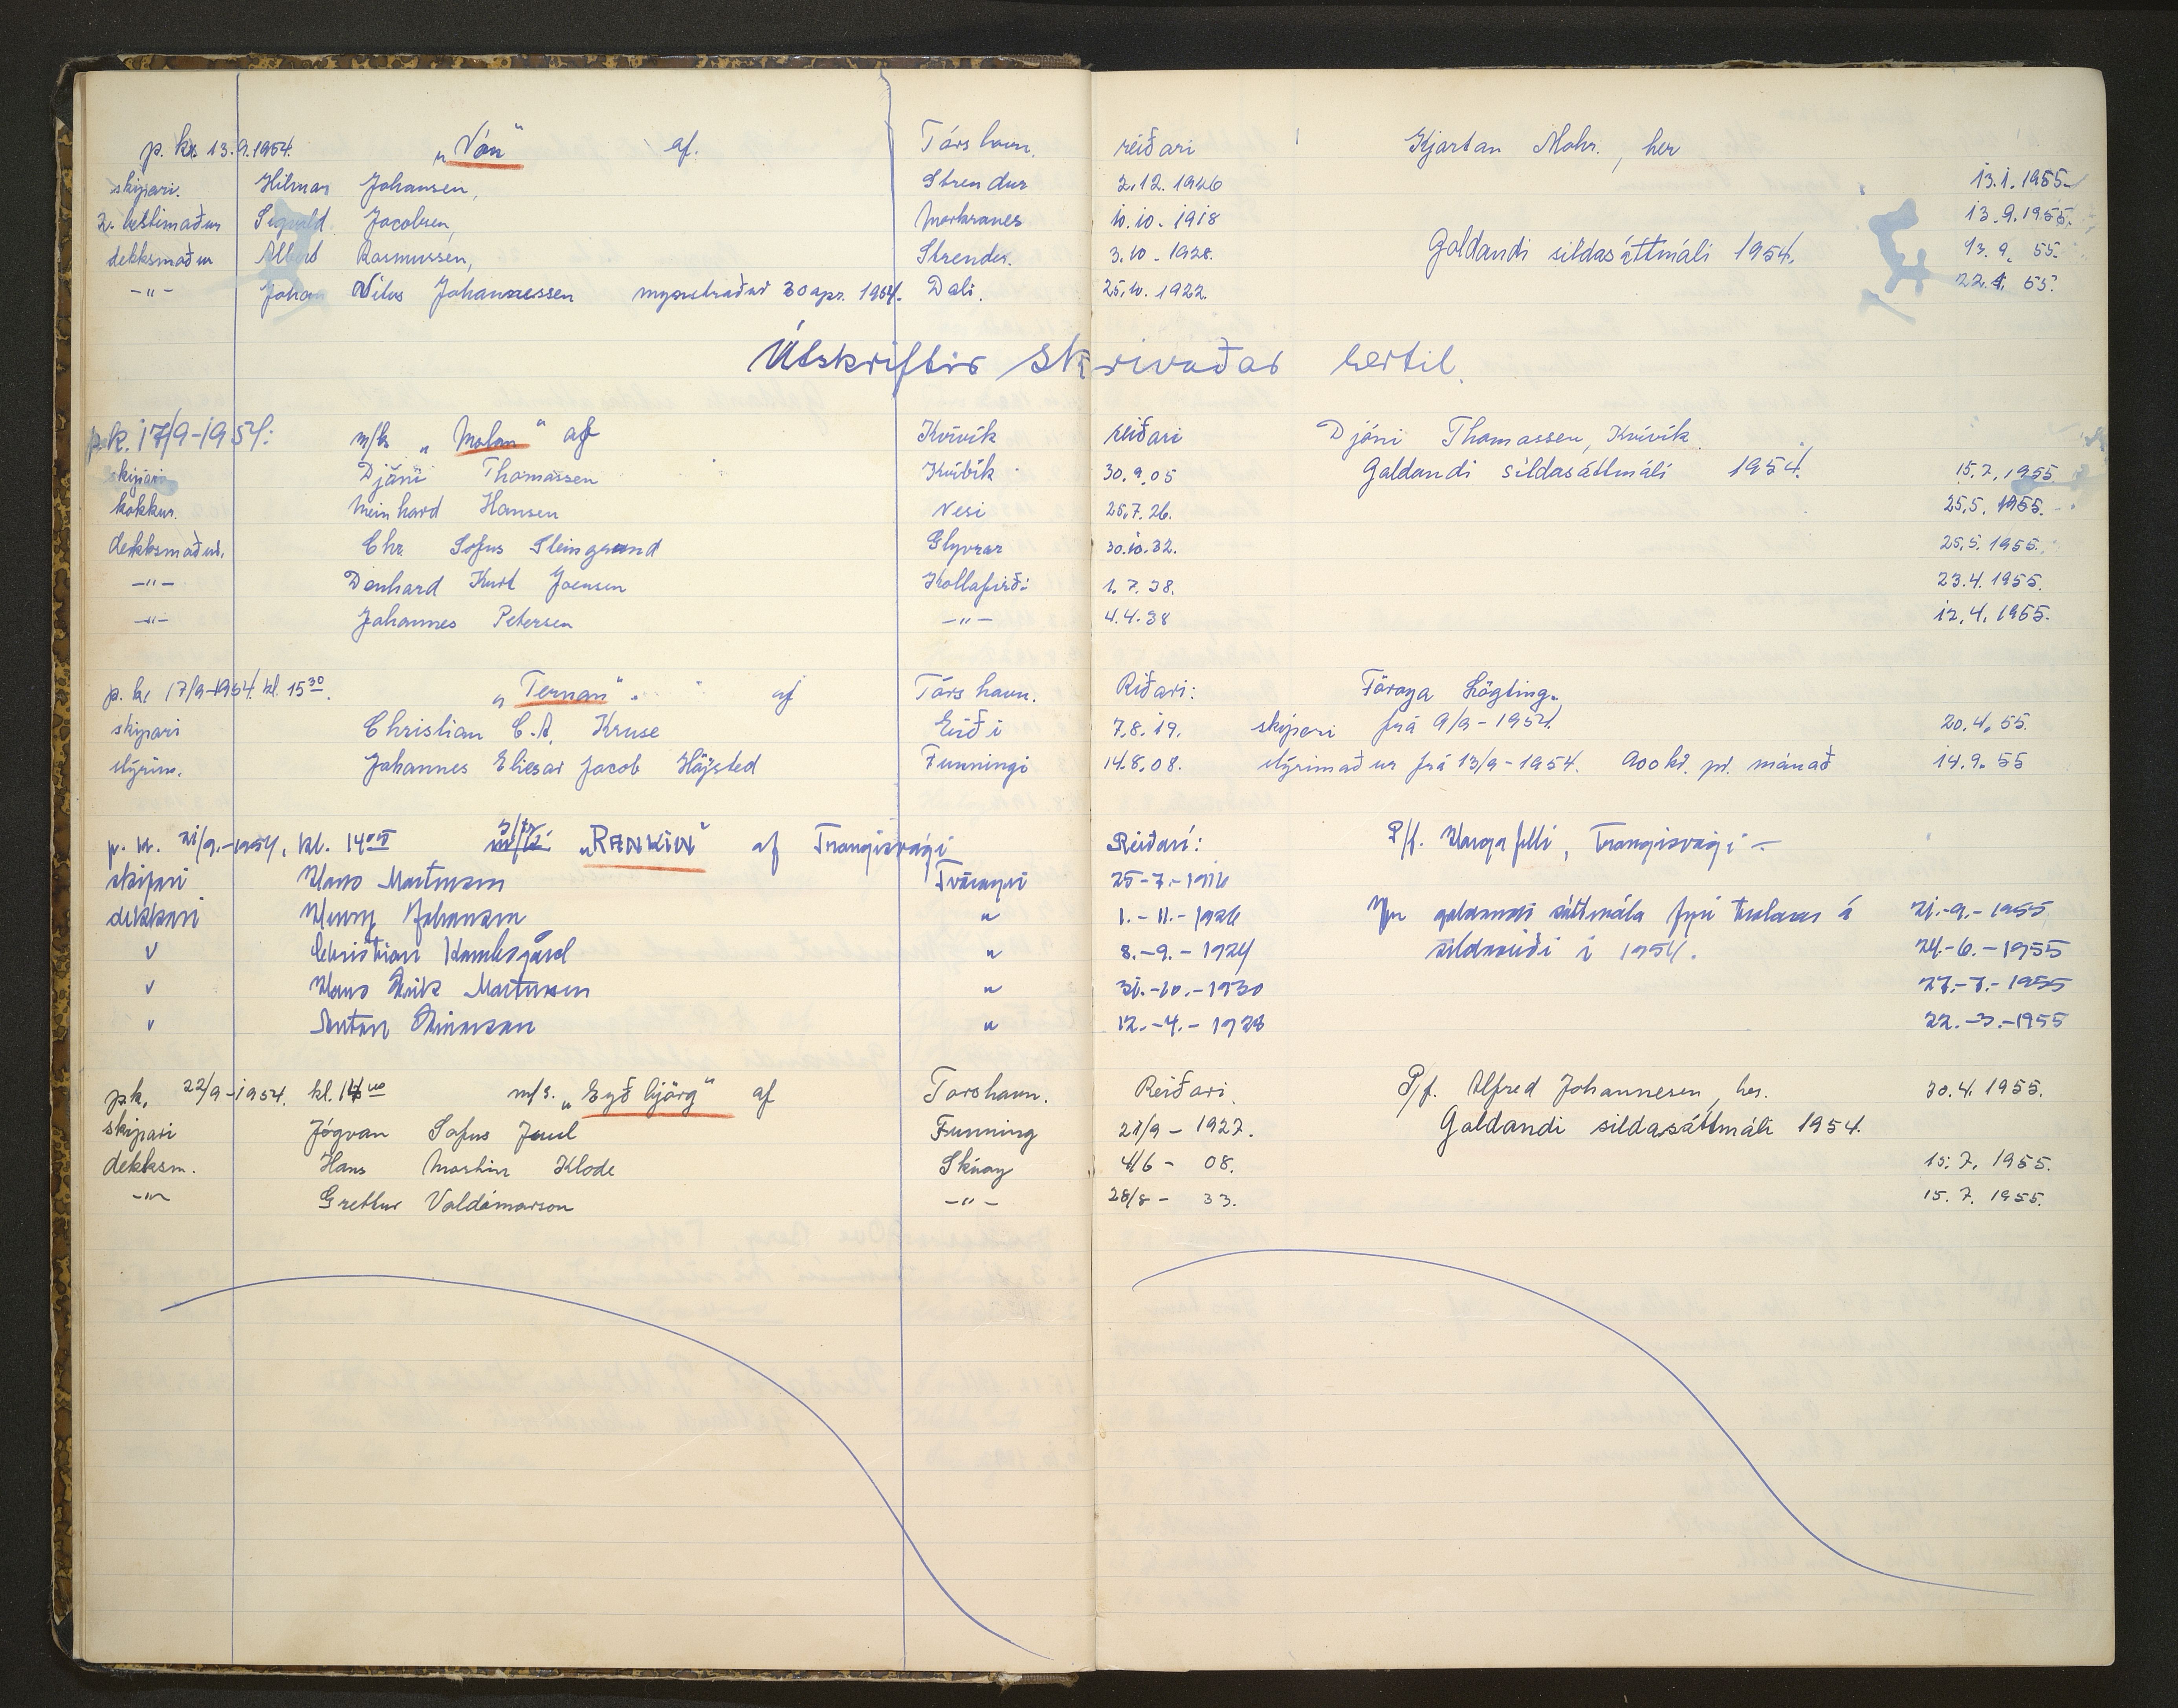 p. kr. 13.9.1954. „Vón" af. Tórshavn. reiðari Kjartan Mohr., her
skipari. Hilmar Johansen, Strendur 2.12.1926 13.1.1955
2. bestimaður Sigvald Jacobsen, Morkranes 10.10.1918 13.9.1955.
dekksmaður Albert Rasmussen, Strendur. 3.10.1928. Galdandi sildasáttmáli 1954. 13.9. 55.
-"- Johan Nilus Johannessen mynstraður 30 apr. 1954. Dali. 25.10.1922. 55.
Útskriftir skrivaðar hertil.
p.k. 17/9-1954: m/k „Molan" af Kvívík reiðari Djóni Thomassen, Kvívík
skipari Djóni Thomassen Kvívík 30.9.05 Galdandi sildasáttmáli 1954. 15.7.1955
kokkur. Meinhard Hansen Nesi 25.7.26. 25.5.1955.
dekksmaður. Chr Sofus Steingrund Glyvrar 30.10.32. 25.5.1955.
-"- Denhard Kurt Joensen Kollafirði 1.7.38. 23.4.1955.
-"- Johannes Petersen -"- 4.4.38 12.4.1955.
p. kr 17/9-1954 kl. 15 30. „Ternan". af Tórshavn. Riðari: Föroya Lögting.
skipari Christian C.A. Kruse Eiði 7.8.19. skipari frá 9/9-1954. 20.4.55.
stýrim. Johannes Eliesar Jacob Højsted Funningi 14.8.08. stýrimaður frá 13/9-1954. 900 kr. pr. mánað 14.9.55
p. kr. 21/9.-1954, kl. 14 00 s/tr. „RANKIN" af Trongisvági Reiðari: P/f. Trongisvági
skipari Hans Martinsen Tvöroyri 25-7-1916
dekkari Henry Johansen " 1.-11.-1926 galdandi sáttmála fyri trolarar á 21.-9.-1955
" Christian Kambsgård " 8.-9.-1924 sildaveiði i 1954. 24.-6.-1955
" Hans Erik Martinsen " 31.-10.-1930 27.-7.-1955
" Anton Einarsson " 12.-4.-1923 22.-3.-1955
p.k. 22/9-1954. kl. 14 00 m/s. „Eyðbjörg" af Torshavn. Reiðari. P/f. Alfred Johannesen, her. 30.4.1955.
skipari Jógvan Sofus Juul Funning 21/9-1927. Galdandi sildasáttmáli 1954.
dekksm. Hans Martin Klode Skúoy 4/6-08. 15.7.1955.
-"- Grettur Valdimarson -"- 28/8-33. 15.7.1955.